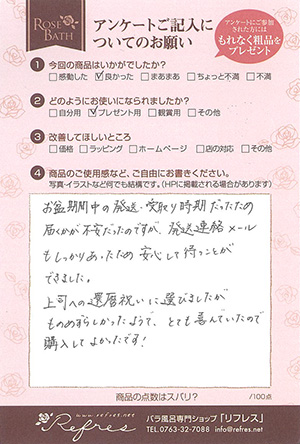 ROSE BATH
アンケートご記入に
ついてのお願い
アンケートにご参加
された方には
もれなく粗品を
プレゼント
1 今回の商品はいかがでしたか?
□感動した ☑良かった □まあまあ □ちょっと不満 □不満
2 どのようにお使いになられましたか?
□自分用 ☑プレゼント用 □観賞用 □その他
3 改善してほしいところ
□価格 □ラッピング □ホームページ □店の対応 □その他
4 商品のご使用感など、ご自由にお書きください。
写真・イラストなど何でも結構です。(HPに掲載される場合があります)
お盆期間中の発送・受取り時期だったため
届くかが不安だったのですが、発送連絡メール
もしっかりあったため安心して待つことが
できました。
上司への還暦祝いに選びましたが
ものめずらしかったようで、とても喜んでいたので
購入してよかったです!
商品の点数はズバリ? /100点
www.refres.net
Refres
バラ風呂専門ショップ「リフレス」
TEL.0763-32-7088 info@refres.net